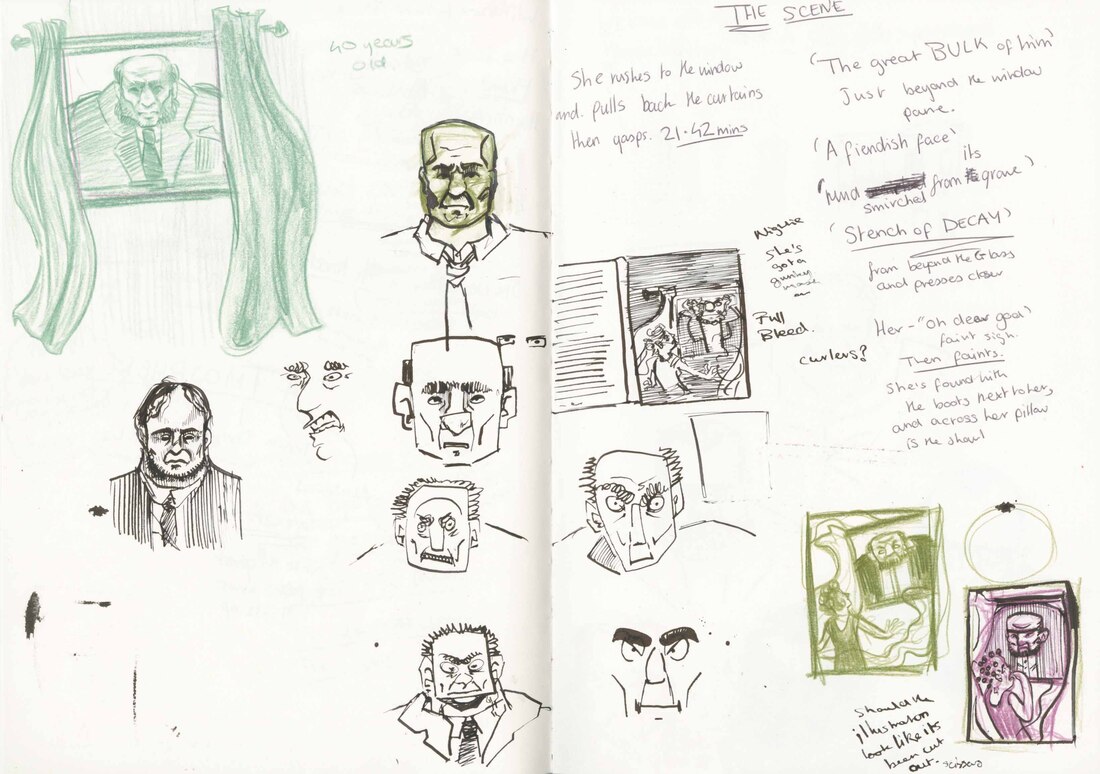 40 years
old.
THE SCENE
She rushes to the window
and pulls back the curtains
then gasps. 21.42 mins
('The great BULK of him')
Just beyond the window
pane.
'A fiendish face'
('mud smirched from its grave')
('Stench of DECAY)
from beyond the Glass
and presses closer
Her - "Oh dear god"
faint sigh.
Then faints.
She's found with
the boots next to her,
and across her pillow
is the shawl
Nightie
She's
got a
on
Full
Bleed.
curlers?
Should the
illustration
look like its
been cut
out. - scissors